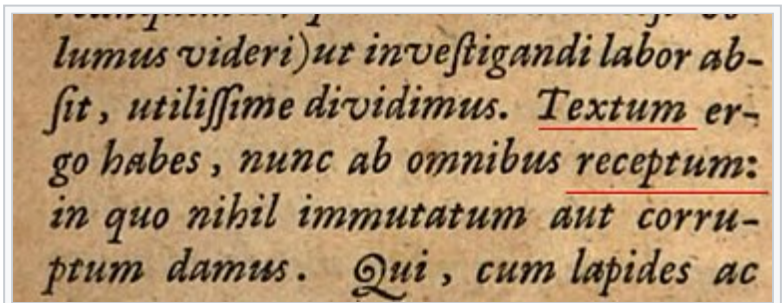 lumus videri)ut inveſtigandi labor ab-
ſit, utiliſſime dividimus. Textum er-
go habes, nunc ab omnibus receptum:
in quo nihil immutatum aut corru-
ptum damus. Qui, cum lapides ac